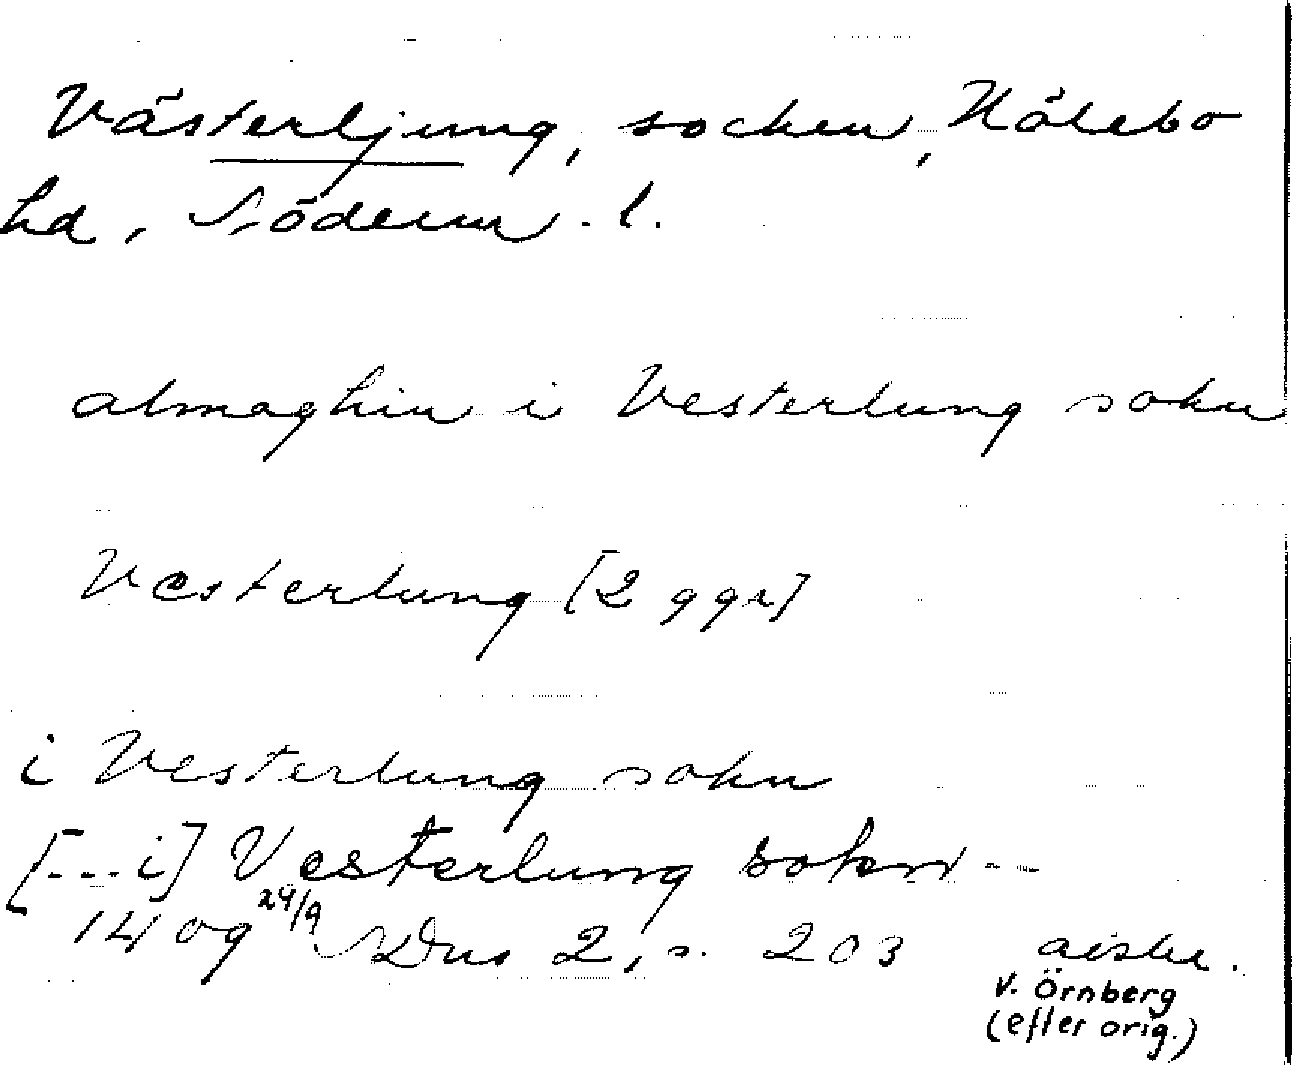 Västerljung, socken, Hölebo
hd, Söderm. l.
almaghin i Vesterlung sokn
Vesterlung [2 ggr]
i Vesterlung sokn
[---i] Vesterlung sokn ---
1409 24/9 SDns 2, s. 203 avskr.
v. Örnberg
(efter orig.)